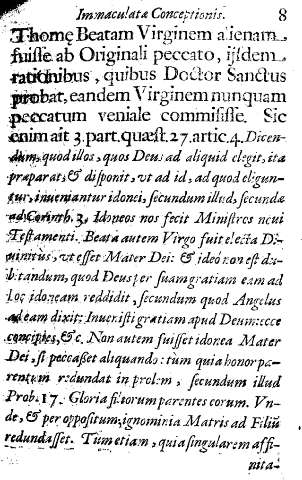 Immaculatæ Conceptionis. 8
Thomę Beatam Virginem alienam,
fuisse ab Originali peccato, ijsdem
rationibus, quibus Doctor Sanctus
probat, eandem Virginem nunquam
peccatum veniale commisisse. Sic
enim ait 3. part. quæst. 27. artic. 4. Dicen-
dum, quod illos, quos Deus ad aliquid elegit, ita
præparat, & disponit, vt ad id, ad quod eligun-
tur, inueniantur idonei, secundum illud, secundæ
ad Corinth. 3, Idoneos nos fecit Ministros noui
Testamenti. Beata autem Virgo fuit electa Di-
uinitus, vt esset Mater Dei: & ideò non est du-
bitandum, quod Deus per suam gratiam eam ad
hoc idoneam reddidit, secundum quod Angelus
ad eam dixit: Inuenisti gratiam apud Deum: ecce
concipies, &c. Non autem fuisset idonea Mater
Dei, si peccasset aliquando: tum quia honor pa-
rentum redundat in prolem, secundum illud
Prob. 17. Gloria filiorum parentes eorum. Vn-
de, & per oppositum, ignominia Matris ad Filiũ
redundasset. Tum etiam, quia singularem affi-
nita-